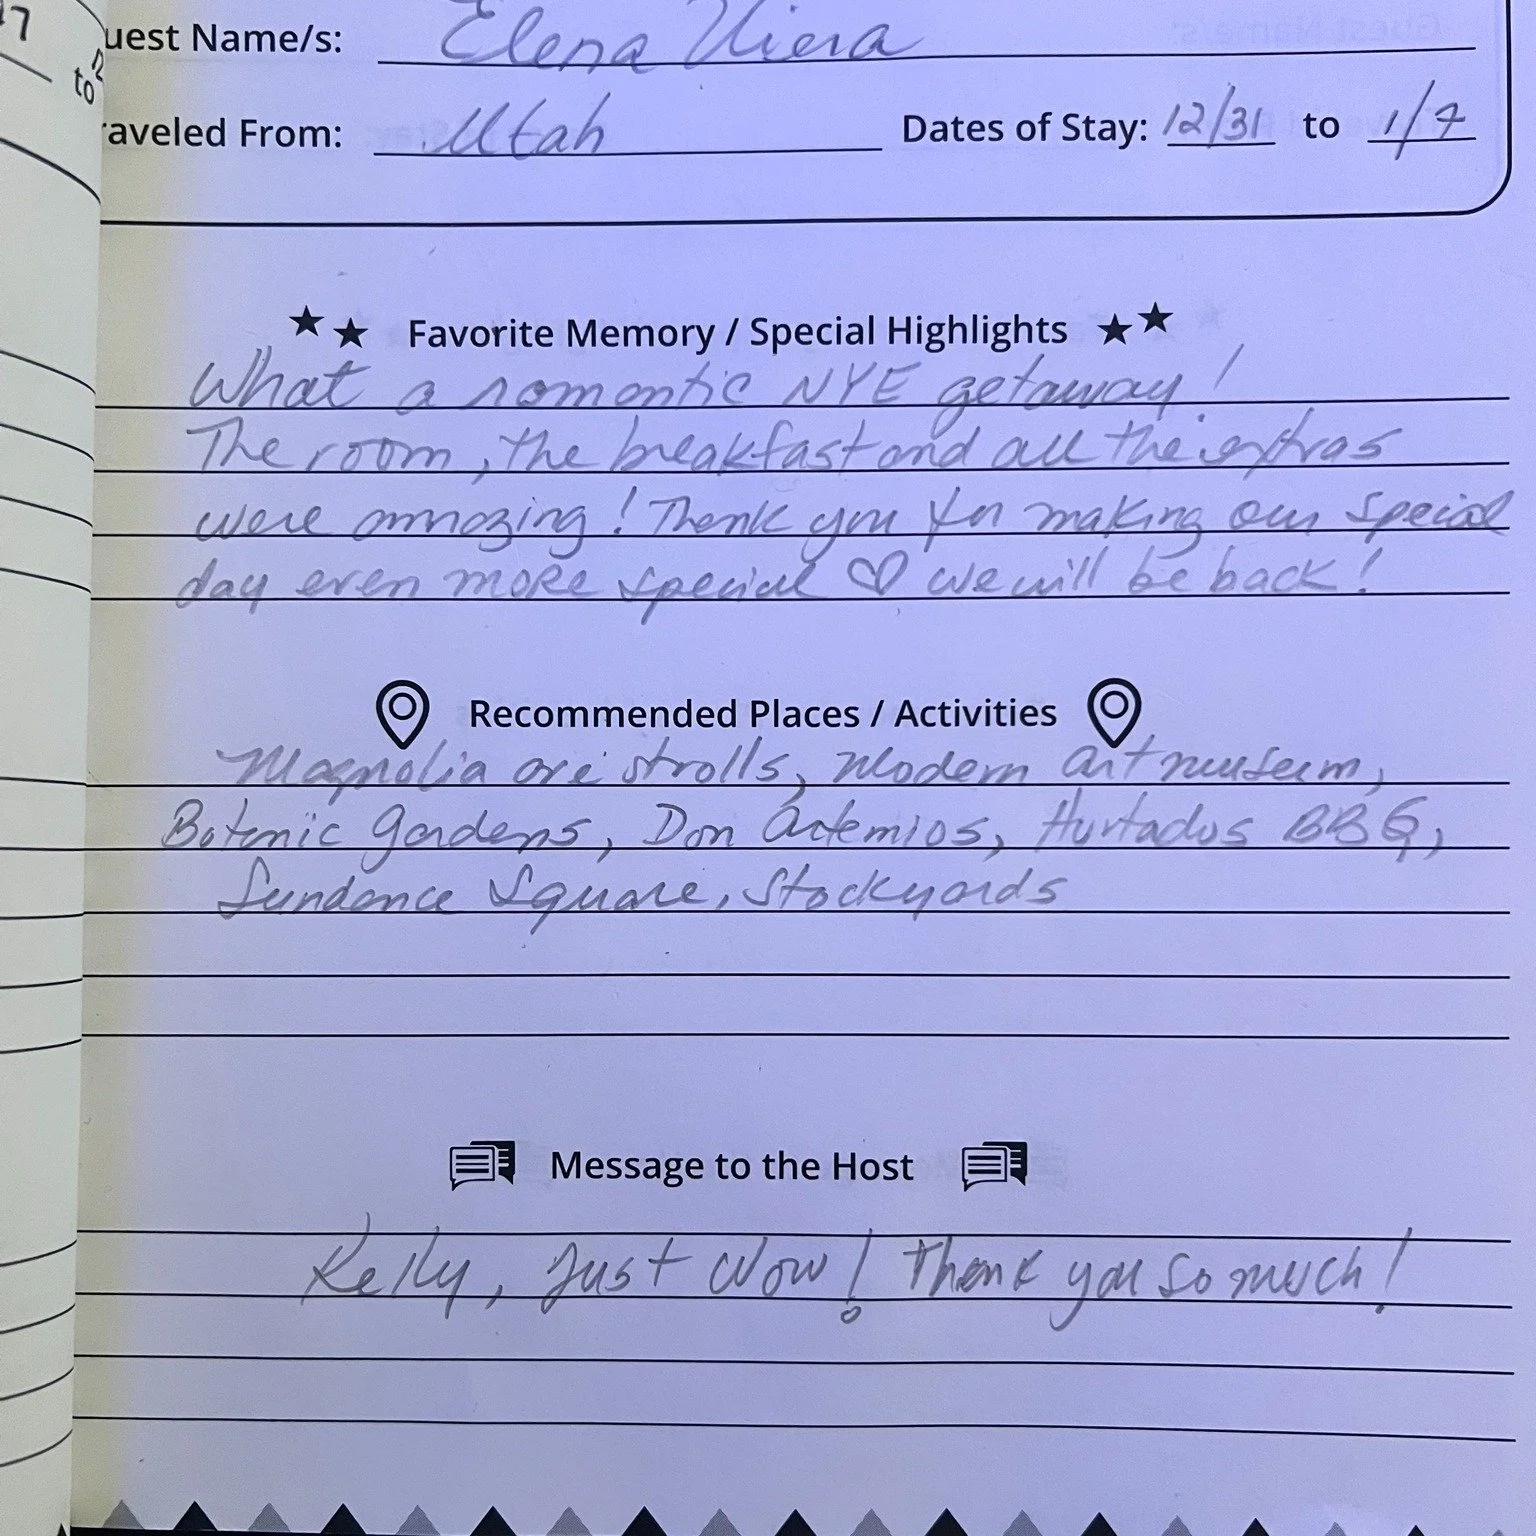 17
to
uest Name/s: Elena Viera
raveled From: Utah Dates of Stay: 12/31 to 1/7
Favorite Memory / Special Highlights
What a romantic NYE getaway!
The room, the breakfast and all the extras
were amazing! Thank you for making our special
day even more special ♡ we will be back!
Recommended Places / Activities
Magnolia ave strolls, Modern art museum,
Botanic gardens, Don Artemios, Hurtados BBQ,
Sundance Square, Stockyards
Message to the Host
Kelly, Just Wow! Thank you so much!